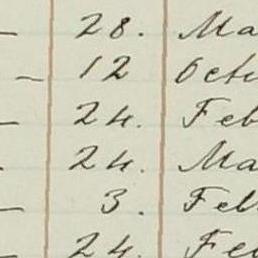 28. Ma
12 Octo
24. Feb
24. Ma
3. Feb
24. Fe